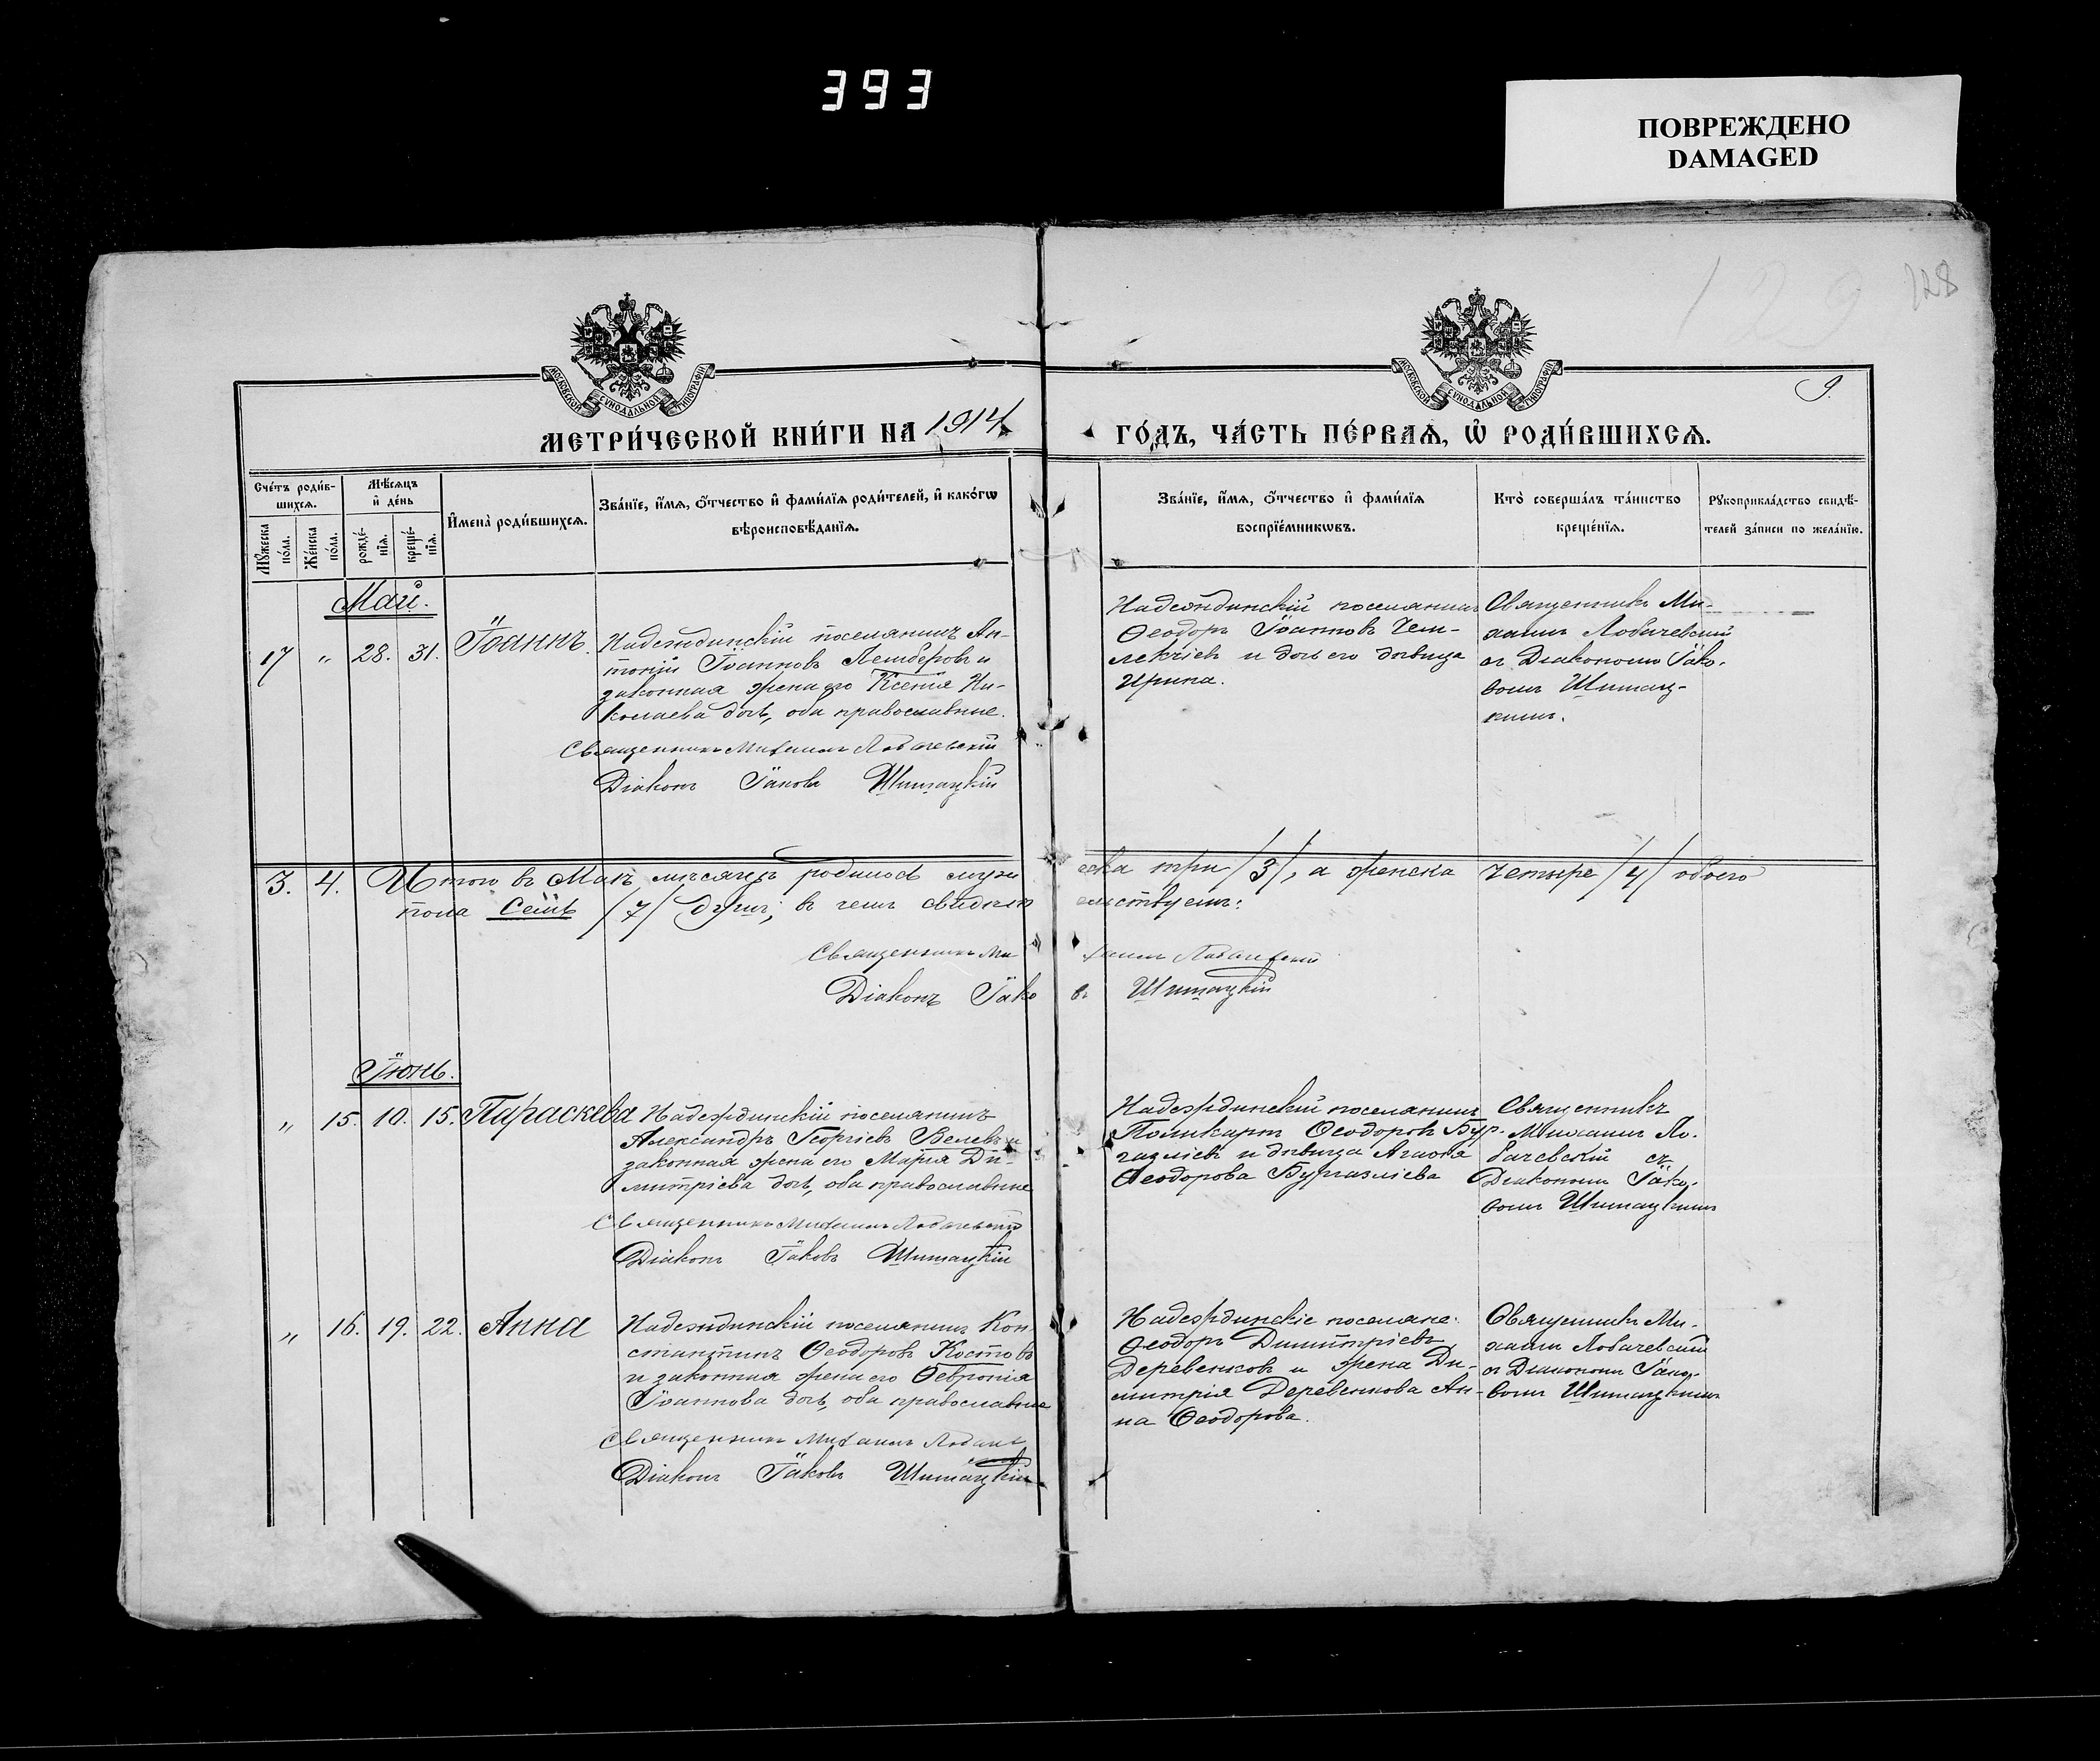 393
ПОВРЕЖДЕНО
DAMAGED
128
9.
МОСКОВСКОЙ СУНОДАЛЬНОЙ ТИПОГРАФІИ
МОСКОВСКОЙ СУНОДАЛЬНОЙ ТИПОГРАФІИ
МЕТРИ́ЧЕСКОЙ КНИ́ГИ НА 1914
ГО́ДЪ, ЧА́СТЬ ПЕ́РВАЯ, Ѿ РОДИ́ВШИХСЯ.
Сче́тъ роди́в-
шихся.
Мѣ́сяцъ
и де́нь
Мꙋжеска по́ла.
Же́нска по́ла.
рожде́-
нїя.
креще́-
нїя.
Имена̀ роди́вшихся.
Зва́нїе, и́мя, о́тчество и фами́лїя роди́телей, и како́гѡ
вѣроисповѣ́данїя.
Зва́нїе, и́мя, о́тчество и фами́лїя
воспрїе́мникѡвъ.
Кто̀ соверша́лъ та́инство
креще́нїя.
Рꙋкоприкла́дство свидѣ́-
телей за́писи по жела́нїю.
Май.
17 „ 28. 31. Іоаннъ.
Надеждинскій поселянинъ Ан-
тоній Іоанновъ Лемберовъ и
законная жена его Ксенія Ни-
колаева доч, оба православные.
Священникъ Михаилъ Лобачевскій
Діаконъ Іаковъ Шимацкій
Надеждинскій поселянинъ
Ѳеодоръ Іоанновъ Чем-
лекчіевъ и дочь его дѣвица
Ирина.
Священникъ Ми-
хаилъ Лобачевскій
съ Діакономъ Іако-
вомъ Шимац-
кимъ.
3. 4. Итого въ Маѣ мѣсяцѣ родилось муже
ска три /3/, а женска четыре /4/ обоего
пола семь /7/ душъ, въ чемъ свидѣт
ельствуемъ:
Священникъ Ми
хаилъ Лобачевскій
Діаконъ Іако
въ Шимацкій
Іюнь.
„ 15. 10. 15. Параскева
Надеждинскій поселянинъ
Александръ Георгіевъ Велевъ и
законная жена его Марія Ди-
митріева доч, оба православные
Священникъ Михаилъ Лобачевскій
Діаконъ Іаковъ Шимацкій
Надеждинскій поселянинъ
Поликарпъ Ѳеодоровъ Бур-
газліевъ и дѣвица Агаѳія
Ѳеодорова Бургазліева
Священникъ
Михаилъ Ло-
бачевскій съ
Діакономъ Іако-
вомъ Шимацкимъ
„ 16. 19. 22. Анна
Надеждинскій поселянинъ Кон-
стантинъ Ѳеодоровъ Костовъ
и законная жена его Ѳевронія
Іоаннова доч, оба православные
Священникъ Михаилъ Лобаче
Діаконъ Іаковъ Шимацкій
Надеждинскіе поселяне:
Ѳеодоръ Димитріевъ
Деревенковъ и жена Ди-
митрія Деревенкова Ан-
на Ѳеодорова.
Священникъ Ми-
хаилъ Лобачевскій
съ Діакономъ Іако-
вомъ Шимацкимъ